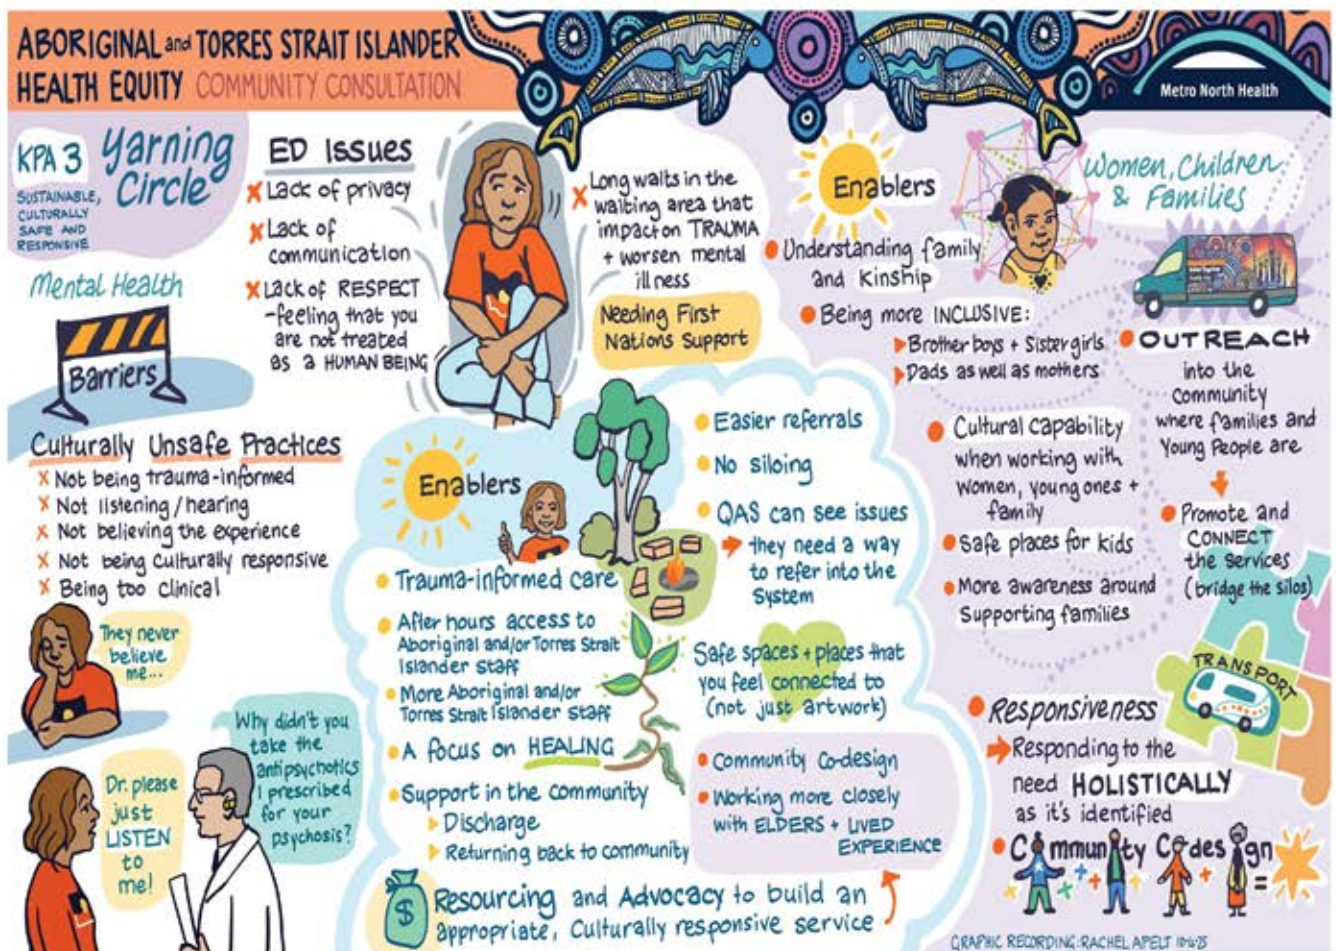 ABORIGINAL and TORRES STRAIT ISLANDER
HEALTH EQUITY COMMUNITY CONSULTATION
Metro North Health
KPA 3
SUSTAINABLE,
CULTURALLY
SAFE AND
RESPONSIVE
Yarning
Circle
Mental Health
Barriers
ED Issues
X Lack of privacy
X Lack of
communication
X Lack of RESPECT
-feeling that you
are not treated
as a HUMAN BEING
X Long waits in the
waiting area that
impact on TRAUMA
+ worsen mental
illness
Needing First
Nations Support
Culturally Unsafe Practices
X Not being trauma-informed
X Not listening/hearing
X Not believing the experience
X Not being culturally responsive
X Being too clinical
They never
believe
me...
Dr. please
just
LISTEN
to
me!
Why didn't you
take the
antipsychotics
I prescribed
for your
psychosis?
Enablers
Trauma-informed care
After hours access to
Aboriginal and/or Torres Strait
Islander staff
More Aboriginal and/or
Torres Strait Islander staff
A focus on HEALING
Support in the community
Discharge
Returning back to community
Easier referrals
No siloing
QAS can see issues
they need a way
to refer into the
system
Safe spaces + places that
you feel connected to
(not just artwork)
Community Co-design
Working more closely
with ELDERS + LIVED
EXPERIENCE
$
Resourcing and Advocacy to build an
appropriate, Culturally responsive service
Enablers
Women, Children
& Families
Understanding family
and Kinship
Being more INCLUSIVE:
Brother boys + Sister girls
Dads as well as mothers
Cultural capability
when working with
women, young ones +
family
Safe places for kids
More awareness around
Supporting families
OUTREACH
into the
community
where families and
Young People are
Promote and
CONNECT
the services
(bridge the silos)
TRANSPORT
Responsiveness
Responding to the
need HOLISTICALLY
as it's identified
Community Co-design
+ + + + =
GRAPHIC RECORDING: RACHEL APELT